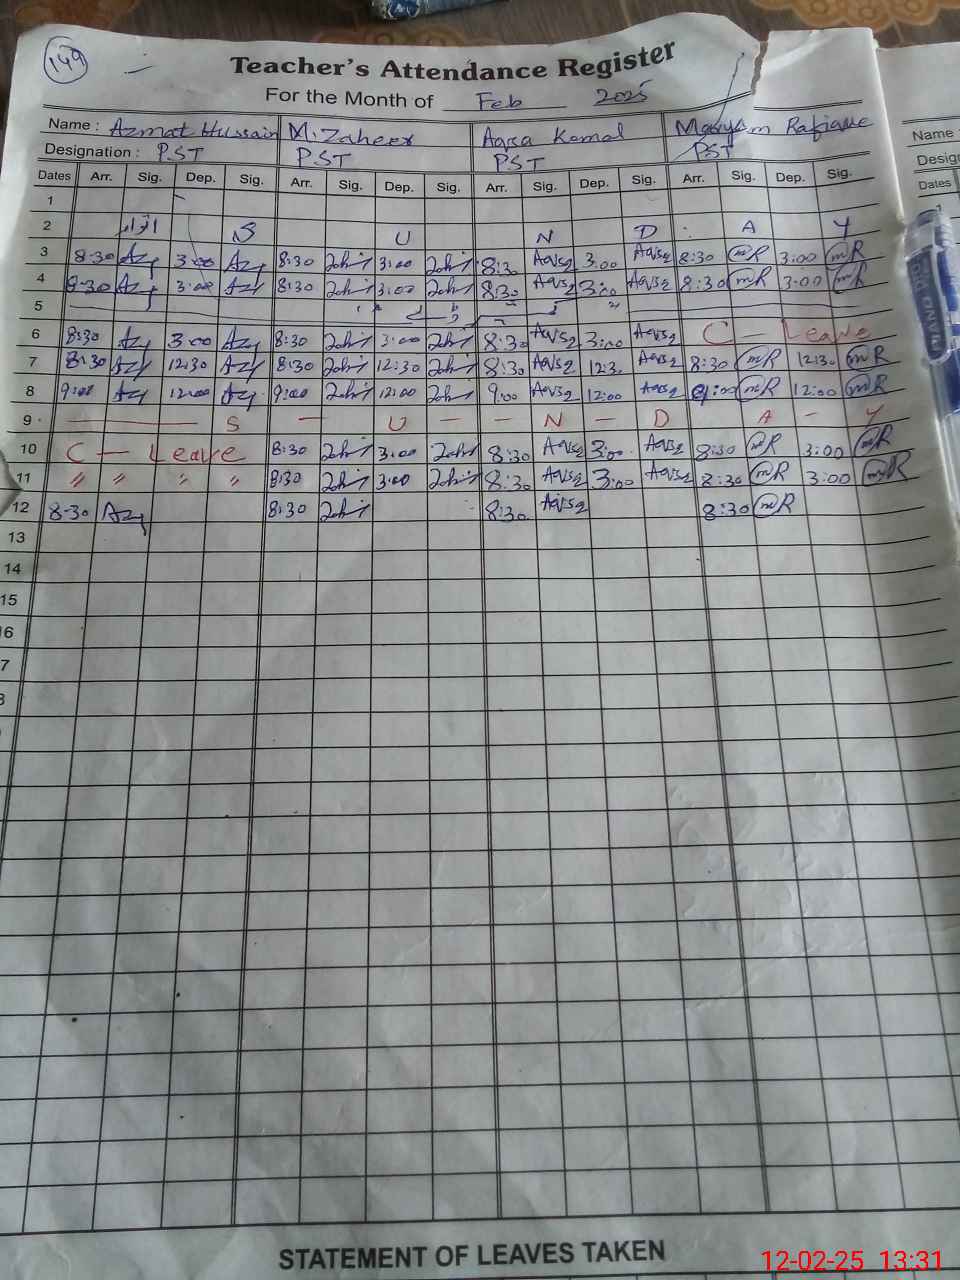 149
Teacher's Attendance Register
For the Month of Feb 2025
Name : Azmat Hussain M. Zaheer Aqsa Kamal Maryam Rafique Name :
Designation : P.ST P.ST PST PST
Dates Arr. Sig. Dep. Sig. Arr. Sig. Dep. Sig. Arr. Sig. Dep. Sig. Arr. Sig. Dep. Sig. Dates
1
2 اتوار S U N D A Y
3 8:30 3:00 8:30 3:00 8:30 3:00 8:30 mR 3:00 mR
4 8:30 3:00 8:30 3:00 8:30 3:00 8:30 mR 3:00 mR
5
6 8:30 3:00 8:30 3:00 8:30 3:00 C — Leave
7 8:30 12:30 8:30 12:30 8:30 12:3 8:30 mR 12:30 mR
8 9:00 12:00 9:00 12:00 9:00 12:00 9:00 mR 12:00 mR
9 — S — U — — N — D A — Y
10 C — Leave 8:30 3:00 8:30 3:00 8:30 mR 3:00 mR
11 " " " " 8:30 3:00 8:30 3:00 8:30 mR 3:00 mR
12 8:30 8:30 8:30 8:30 mR
13
14
15
16
7
STATEMENT OF LEAVES TAKEN
12-02-25 13:31
PIANO